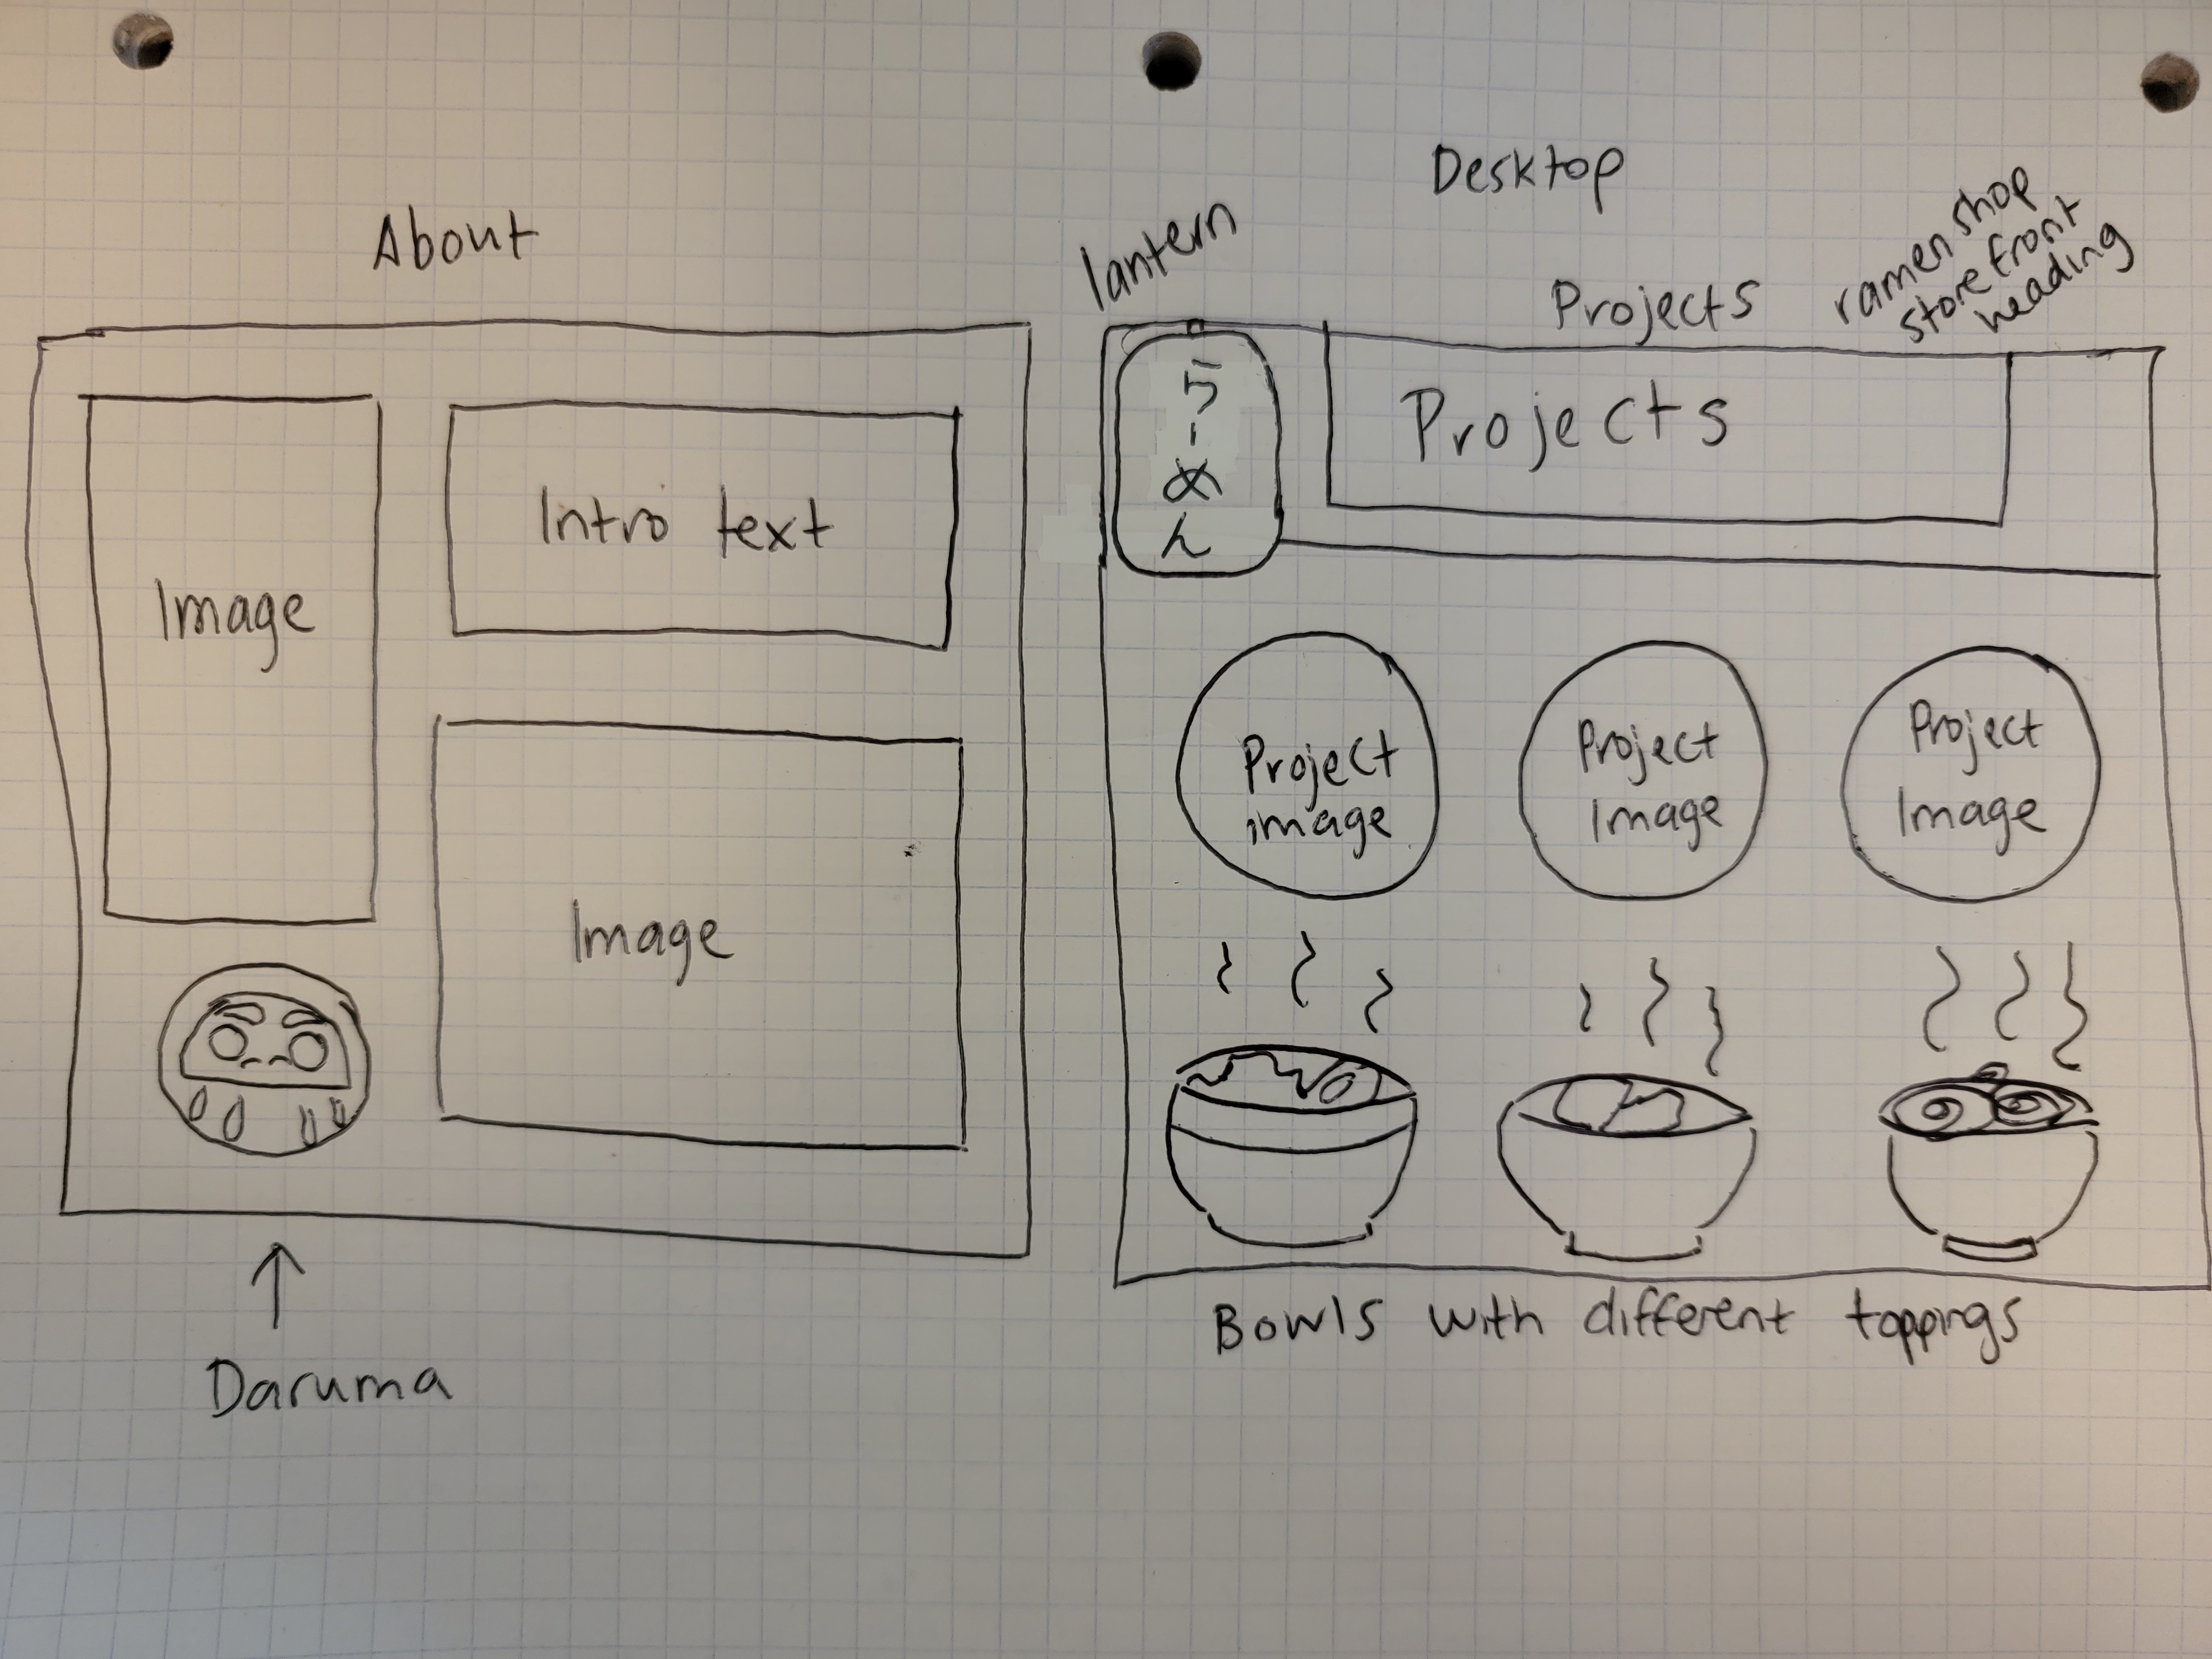 Desktop
About
Image
Intro text
Image
Daruma
lantern
Projects
ramen shop
store front
heading
らーめん
Projects
Project
image
Project
Image
Project
Image
Bowls with different toppings